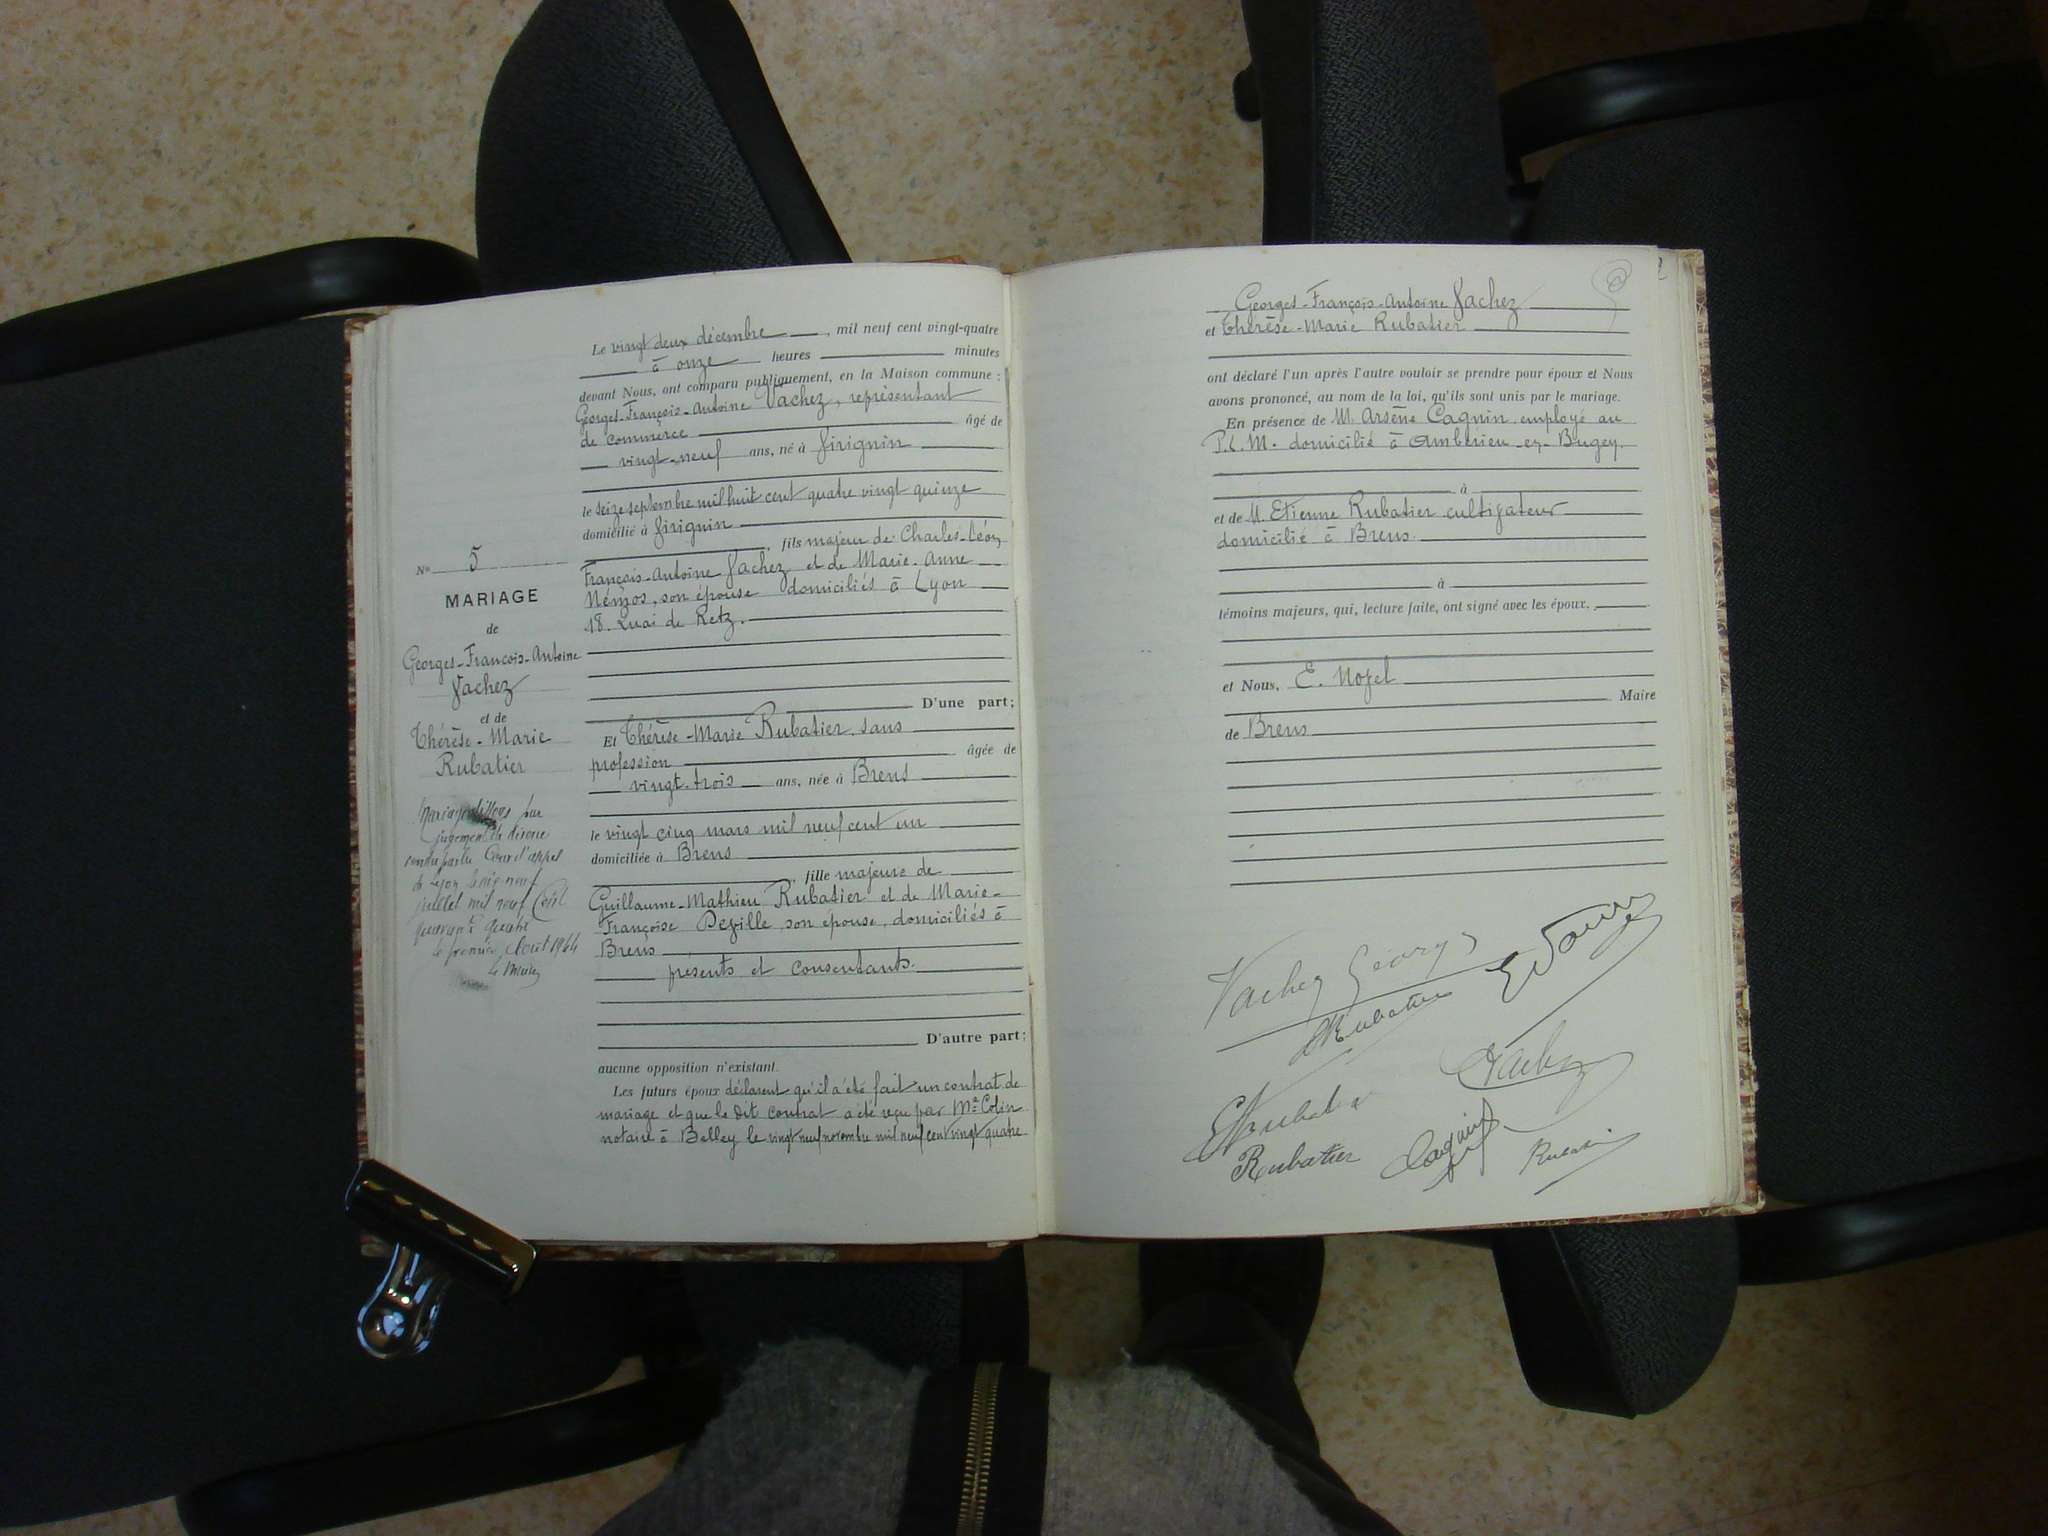 N° 5
MARIAGE
de
Georges-François-Antoine
Vachez
et de
Thérèse-Marie
Rubatier
Mariage dissous par
jugement de divorce
rendu par la Cour d'appel
de Lyon le neuf
juillet mil neuf cent
quarante quatre
le premier Août 1944
Le Maire
Le vingt deux décembre, mil neuf cent vingt-quatre
à onze heures minutes
devant Nous, ont comparu publiquement, en la Maison commune :
Georges-François-Antoine Vachez, représentant
de commerce âgé de
vingt-neuf ans, né à Virignin
le seize septembre mil huit cent quatre vingt quinze
domicilié à Virignin
, fils majeur de Charles-Léon,
François-Antoine Vachez et de Marie-Anne
son épouse domiciliés à Lyon
18. Quai de Retz.
D'une part;
Et Thérèse-Marie Rubatier, sans
profession âgée de
vingt-trois ans, née à Brens
le vingt cinq mars mil neuf cent un
domiciliée à Brens
, fille majeure de
Guillaume-Mathieu Rubatier et de Marie-
Françoise Deville, son épouse, domiciliés à
Brens
présents et consentants.
D'autre part;
aucune opposition n'existant.
Les futurs époux déclarent qu'il a été fait un contrat de
mariage et que le dit contrat a été reçu par Me Colin
notaire à Belley le vingt neuf novembre mil neuf cent vingt quatre
Georges-François-Antoine Vachez
et Thérèse-Marie Rubatier
ont déclaré l'un après l'autre vouloir se prendre pour époux et Nous
avons prononcé, au nom de la loi, qu'ils sont unis par le mariage.
En présence de M. Arsène Cagnin employé au
P.L.M. domicilié à Ambérieu-en-Bugey.
à
et de M. Etienne Rubatier cultivateur
domicilié à Brens.
à
témoins majeurs, qui, lecture faite, ont signé avec les époux.
et Nous, E. Moyel
Maire
de Brens
Vachez Georges
Rubatier
Vachez
Rubatier
Rubatier
Cagnin